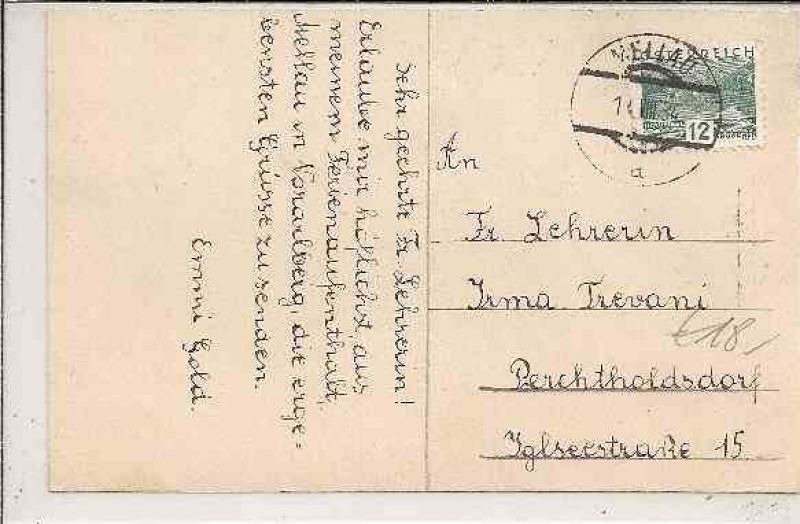 Sehr geehrte Fr. Lehrerin!
Erlaube mir höflichst, aus
meinem Ferienaufenthalt,
Mellau in Vorarlberg, die erge=
bensten Grüsse zu senden.
Emmi Gold.
ÖSTERREICH
MELLAU
12
a
An
Fr. Lehrerin
Irma Trevani
€ 18,-
Perchtholdsdorf
Iglseestraße 15.